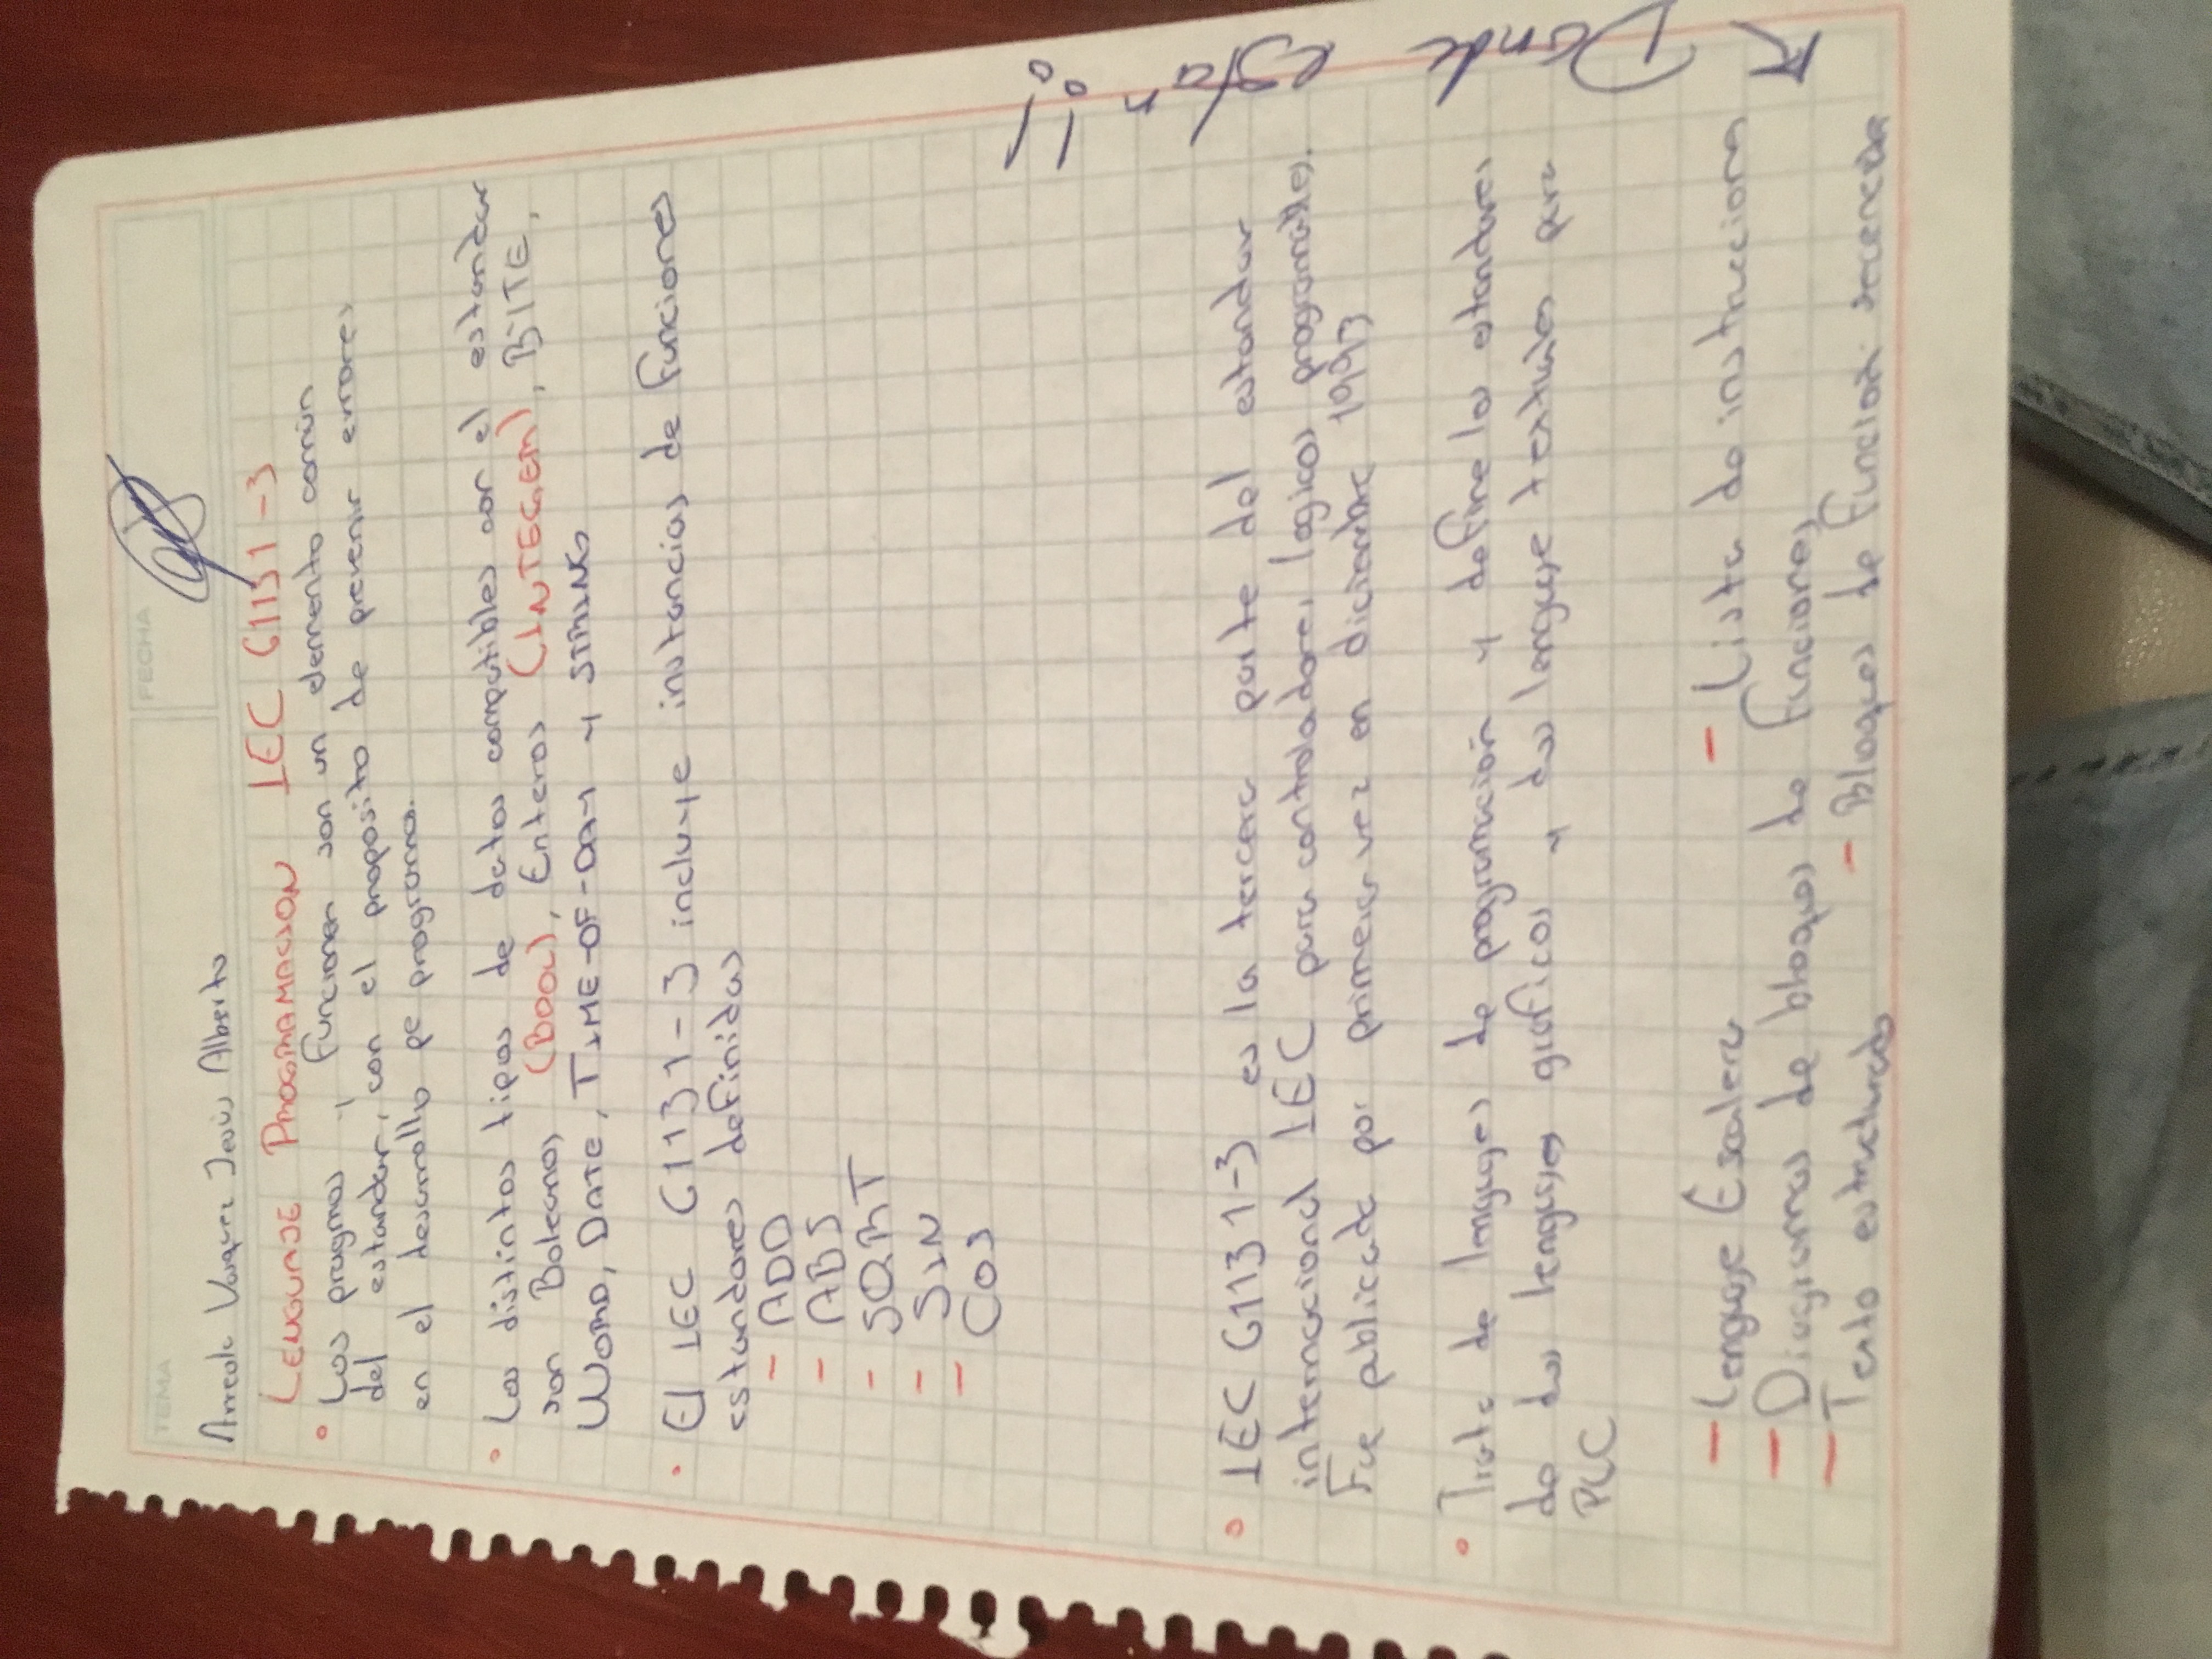 TEMA
FECHA
Arreola Vasquez Jesús Alberto
LENGUAJE PROGRAMACION IEC 61131-3
Los pragmas y funciones son un elemento común
del estandar, con el proposito de prevenir errores
en el desarrollo pe programa.
Los distintos tipos de datos compatibles con el estandar
son Boleanos (BOOL), Enteros (INTEGER), BITE,
WORD, DATE, TIME-OF-DAY y STRING
El IEC 61131-3 incluye instancias de funciones
estandares definidas
- ADD
- ABS
- SQRT
- SIN
- COS
IEC 61131-3 es la tercera parte del estandar
internacional IEC para controladores logicos programables.
Fue publicada por primera vez en diciembre 1993
Trata de lenguajes de programación y define los estandares
de dos lenguajes graficos y dos lenguaje textuales para
PLC
- Lenguaje Escalera - Lista de instrucciones
- Diagramas de bloques de funciones
- Texto estructurado - Bloques de Funcion
Donde estan!!